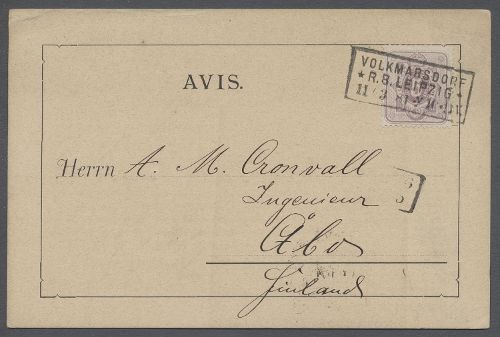 VOLKMARSDORF
★ R.B. LEIPZIG ★
AVIS.
Herrn A. M. Cronvall
Ingenieur
Åbo
Finland